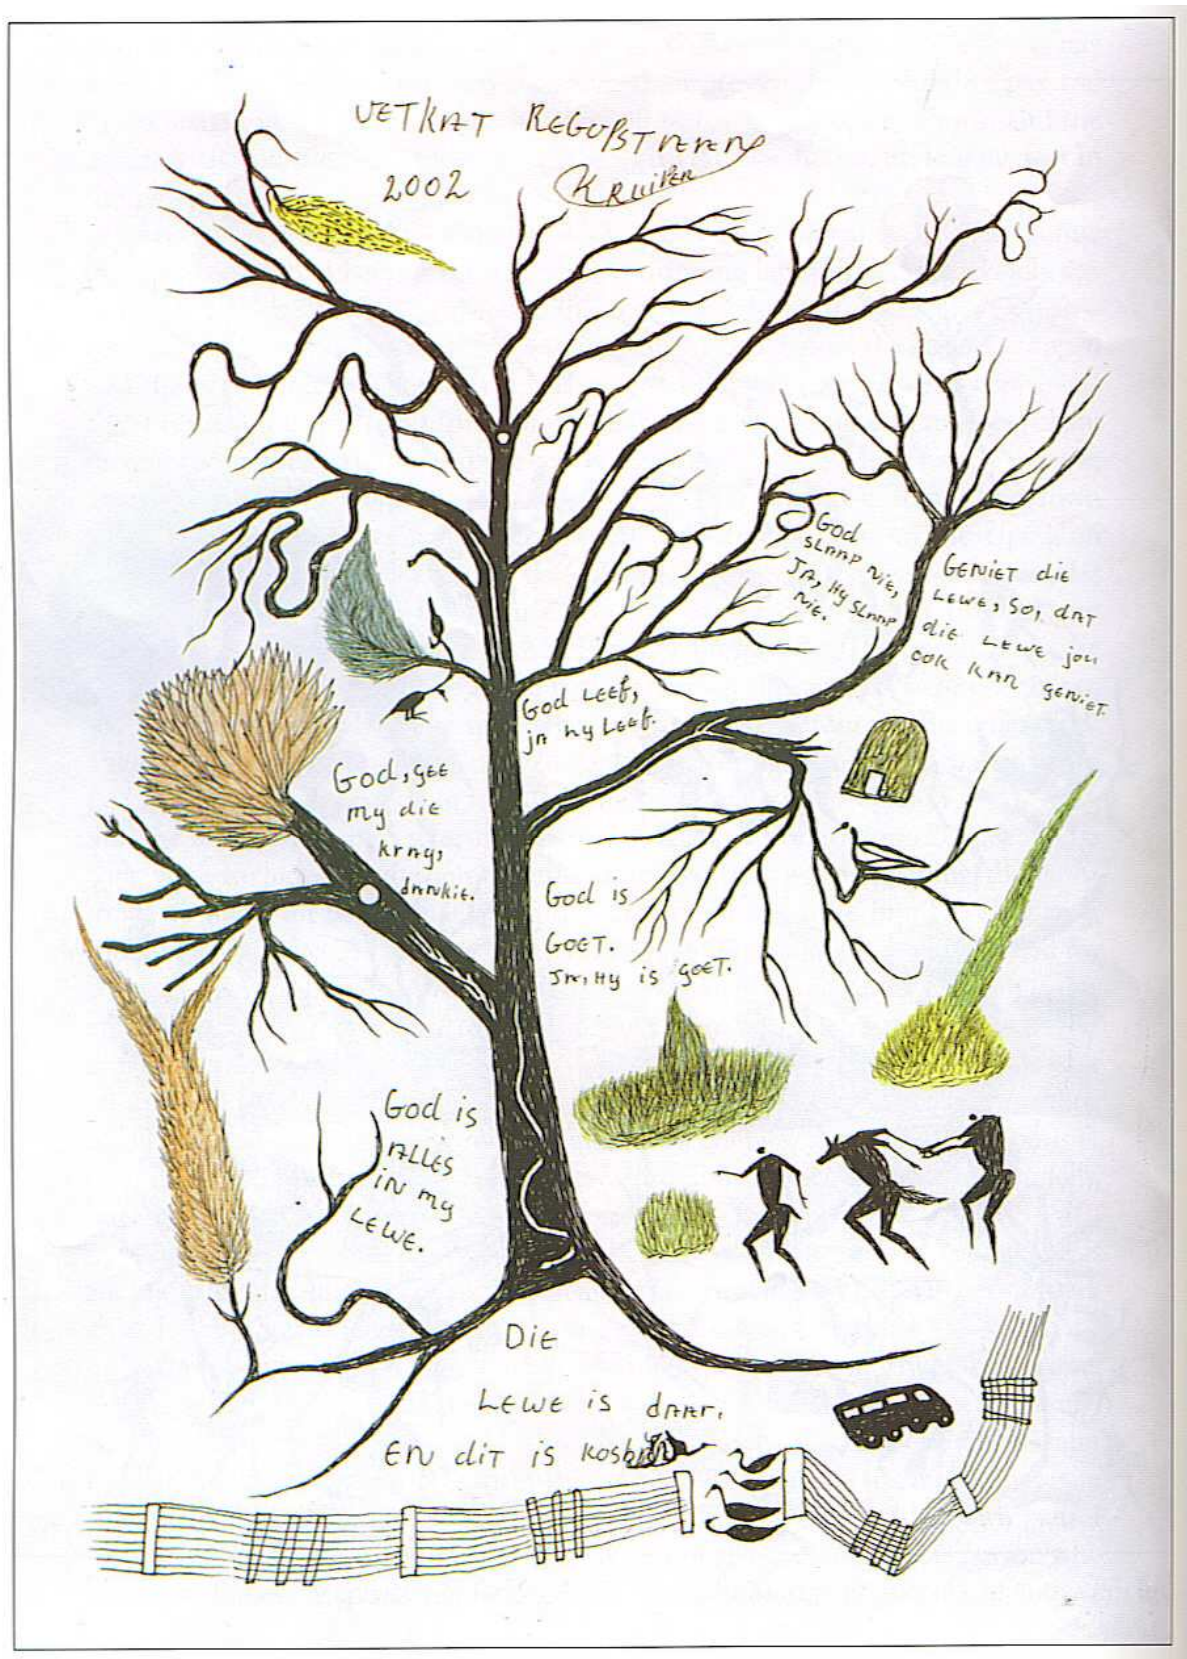 VETKAT REGOPSTAAN
2002 KRUIPER
God
SLAAP NIE,
JA, Hy SLAAP
NIE.
GENIET die
LEWE, SO, dAT
diE LEWE jou
OOK KAN GENIET.
God LEEF,
jA hy LEEF.
God, gEE
my diE
krag,
dANkiE.
God is
GOET.
JA, Hy is GOET.
God is
ALLES
IN my
LEWE.
DiE
LEWE is dAAr,
EN diT is